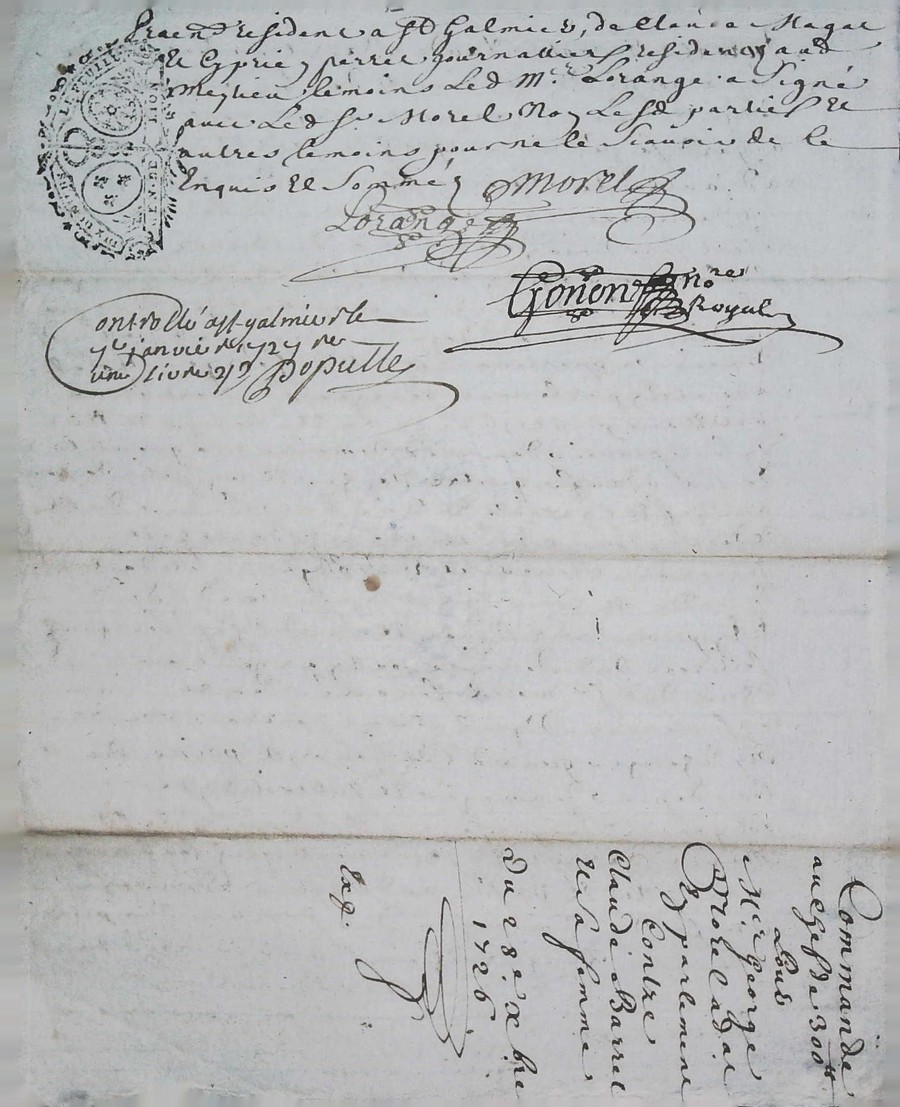 praend resident a St Galmier, de Claude Magat
Et Cyprien perret journallier resident aud
Meylieu temoins Led Mr. Lorange a Signé
avec Led Sr. Morel No Lesd parties Et
autres temoins pour ne le Scavoir de ce
Enquis Et Sommés Morel
Lorange
Gonon nore
Royal
Controllé a St galmier le
janvier 1727 reçu
une livre Populle
Commande
au chef de 300
pour
Mr. George
Morel adat
En parlement
Contre
Claude Barrel
Et sa femme
Du 28e Xbre
1726
Exp.
LA FEUILLE
LION
DIX DENIERS